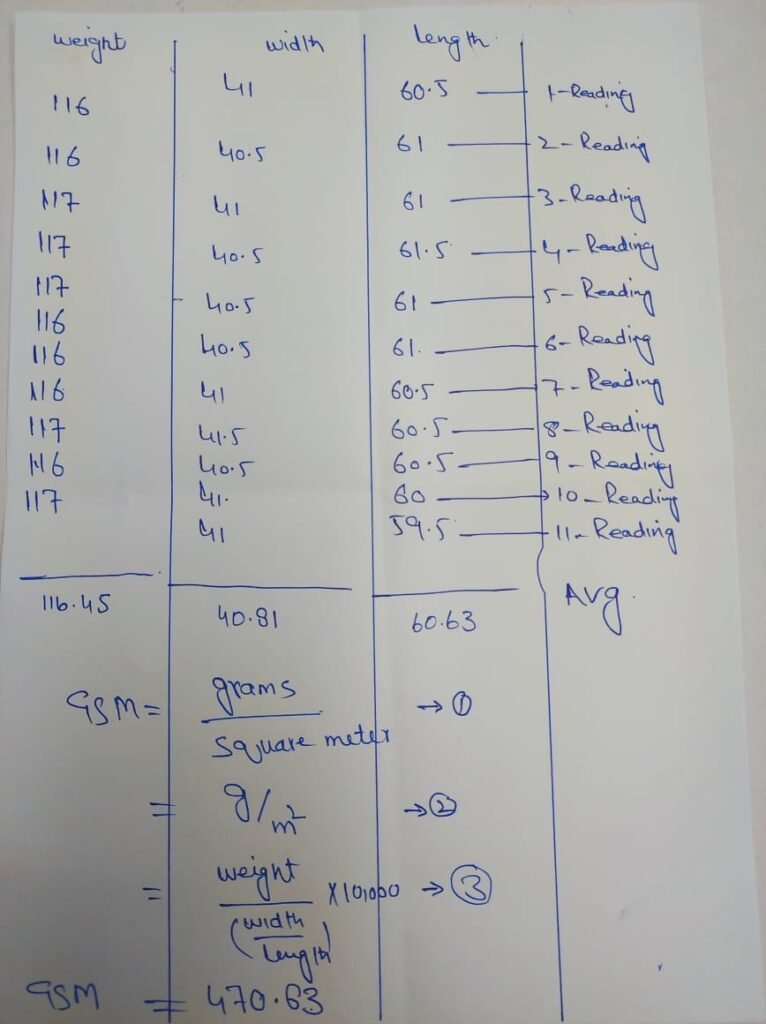 weight width Length
116 41 60.5 1-Reading
116 40.5 61 2-Reading
117 41 61 3-Reading
117 40.5 61.5 4-Reading
117 40.5 61 5-Reading
116 40.5 61. 6-Reading
116 41 60.5 7-Reading
116 41.5 60.5 8-Reading
117 40.5 60.5 9-Reading
116 41. 60 10-Reading
117 41 59.5 11-Reading
116.45 40.81 60.63 Avg.
GSM = grams → ①
square meter
= g/m² → ②
= weight × 10,000 → ③
(width
length)
GSM = 470.63